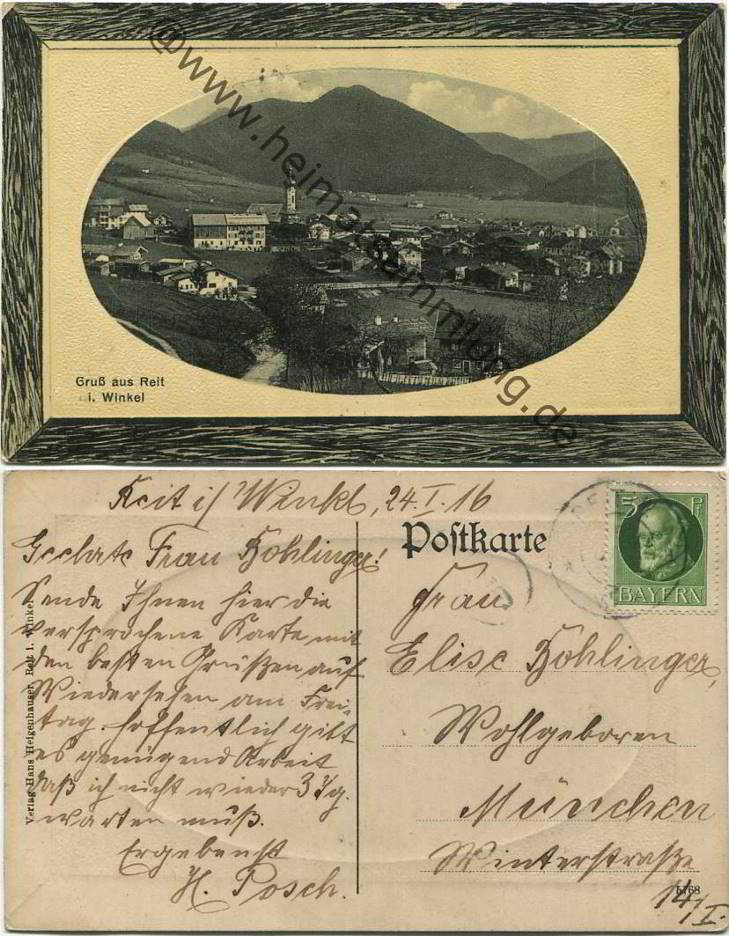 @www.heimatsammlung.de
Gruß aus Reit
i. Winkel
Reit i/ Winkl, 24.I.16
Postkarte
5 Pf
BAYERN
Geehrte Frau Hohlinger!
Sende Ihnen hier die
versprochene Karte mit
den besten Grüßen auf
Wiedersehen am Frei-
tag. hoffentlich gibt
es genügend Arbeit
daß ich nicht wieder 3 Tg.
warten muß.
Ergebenst
H. Posch.
Verlag Hans Heigenhauser, Reit i. Winkel
Frau
Elise Hohlinger,
Wohlgeboren
München
Winterstraße
14/I.
5768